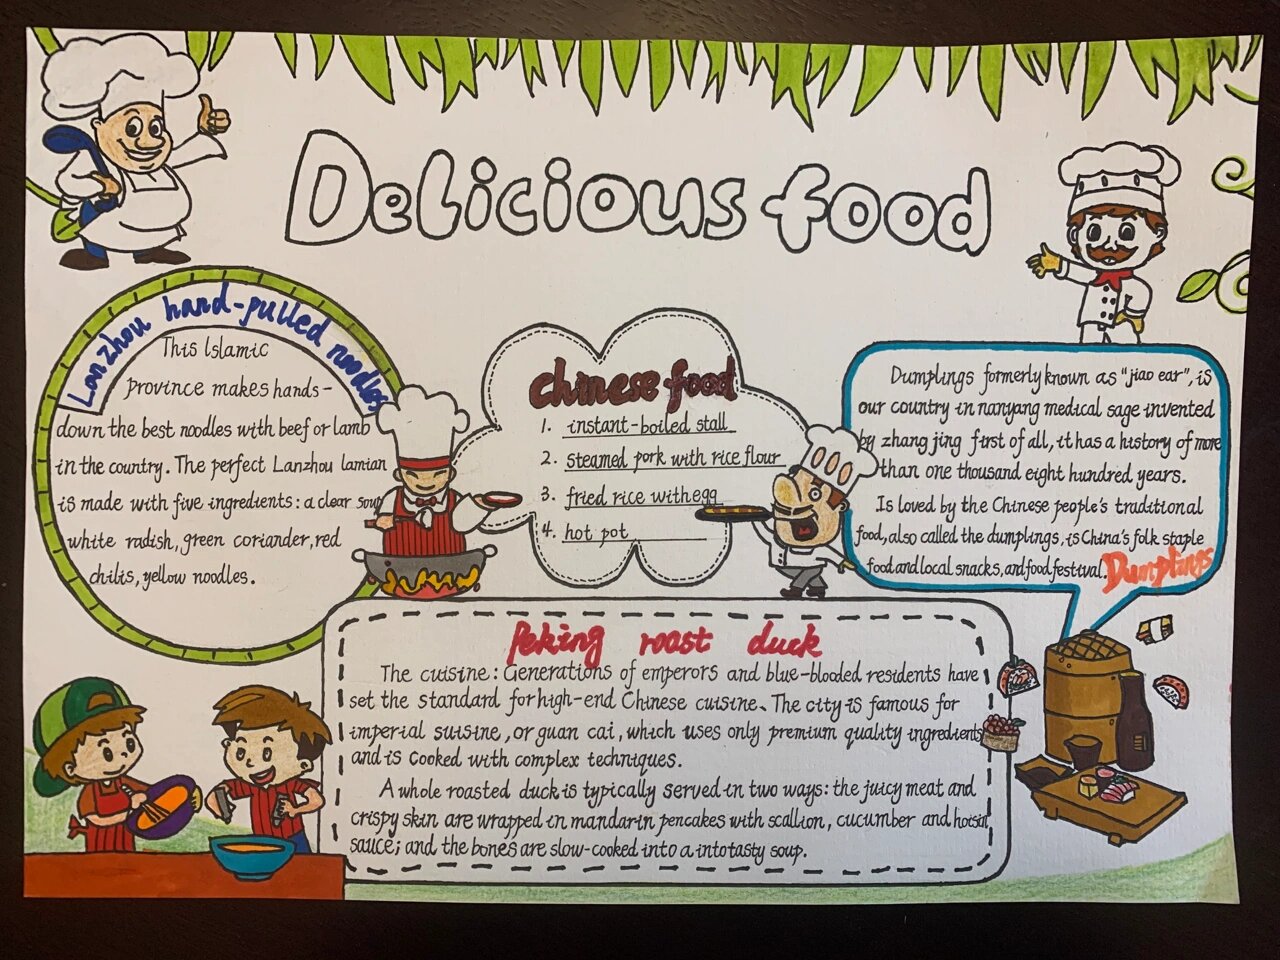 Delicious food
Lanzhou hand-pulled noodles
This Islamic
province makes hands-
down the best noodles with beef or lamb
in the country. The perfect Lanzhou lamian
is made with five ingredients: a clear soup
white radish, green coriander, red
chilis, yellow noodles.
Chinese food
1. instant-boiled stall
2. steamed pork with rice flour
3. fried rice with egg
4. hot pot
Dumplings formerly known as "jiao ear", is
our country in nanyang medical sage invented
by zhang jing first of all, it has a history of more
than one thousand eight hundred years.
Is loved by the Chinese people's traditional
food, also called the dumplings, is China's folk staple
food and local snacks, and food festival. Dumplings
Peking roast duck
The cuisine: Generations of emperors and blue-blooded residents have
set the standard for high-end Chinese cuisine、The city is famous for
imperial suisine, or guan cai, which uses only premium quality ingredients
and is cooked with complex techniques.
A whole roasted duck is typically served in two ways: the juicy meat and
crispy skin are wrapped in mandarin pencakes with scallion, cucumber and hoisin
sauce; and the bones are slow-cooked into a intotasty soup.